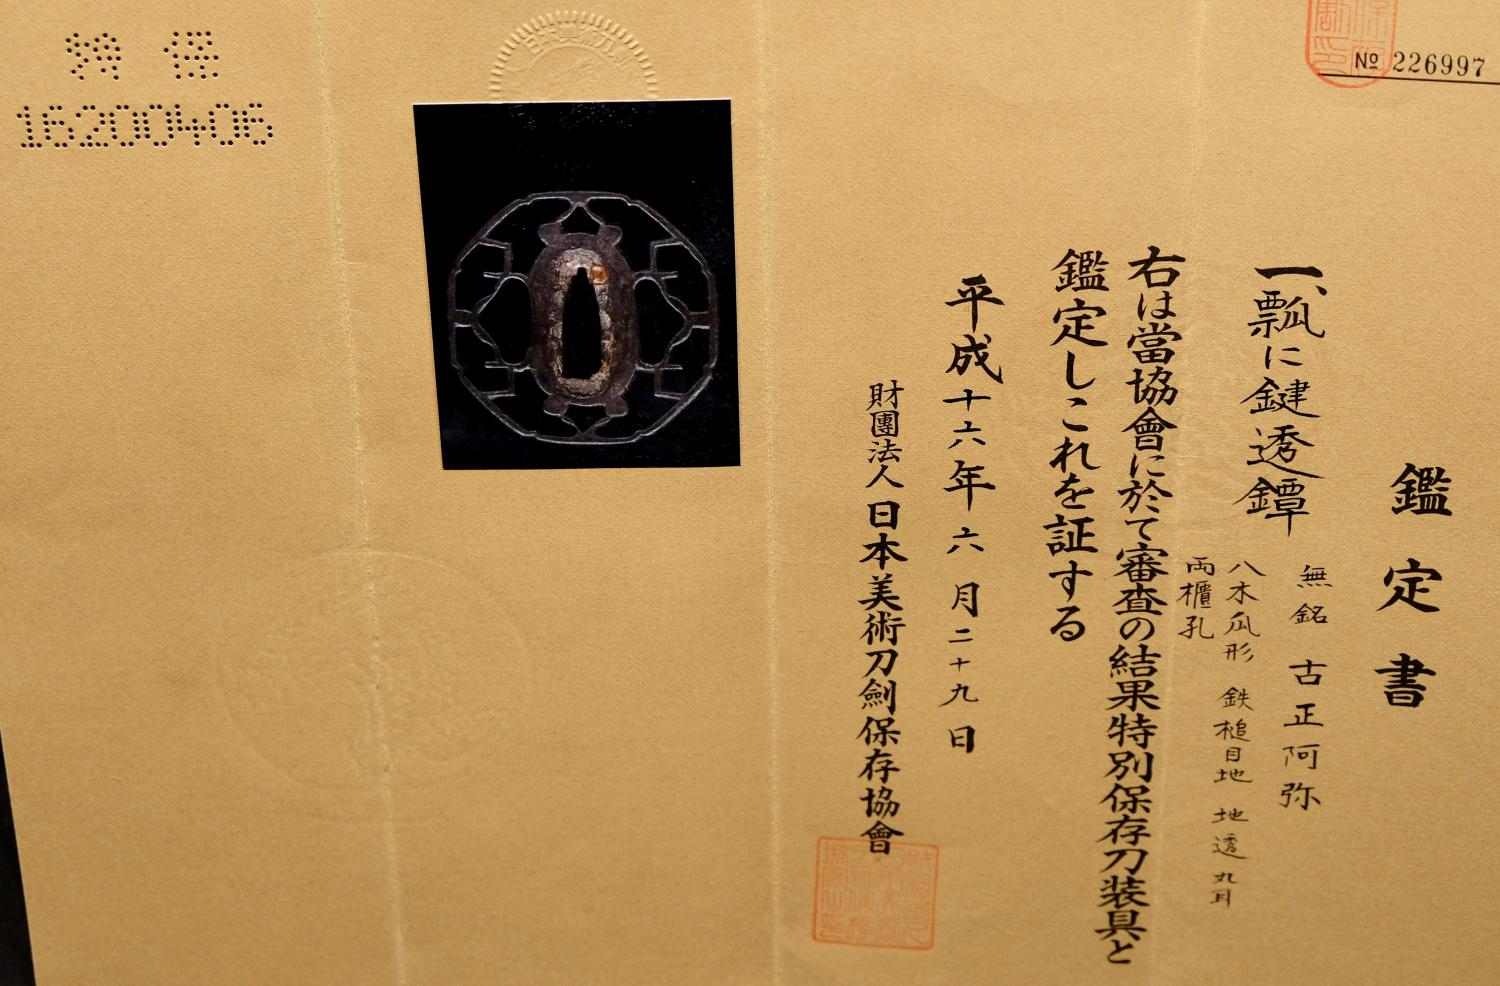 鑑定書
一、瓢に鍵透鐔
無銘 古正阿弥
八木瓜形 鉄槌目地 地透 丸耳
両櫃孔
右は當協會に於て審査の結果特別保存刀装具と
鑑定しこれを証する
平成十六年六月二十九日
財團法人日本美術刀劍保存協會
№ 226997
特保
16200406